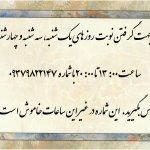 جهت گرفتن نوبت روزهای یک شنبه، سه شنبه و چهارشنبه
ساعت ۱۳:۰۰ تا ۲۰:۰۰ با شماره ۰۹۳۷۹۸۲۲۱۴۷
بگیرید، این شماره در غیر این ساعات خاموش است